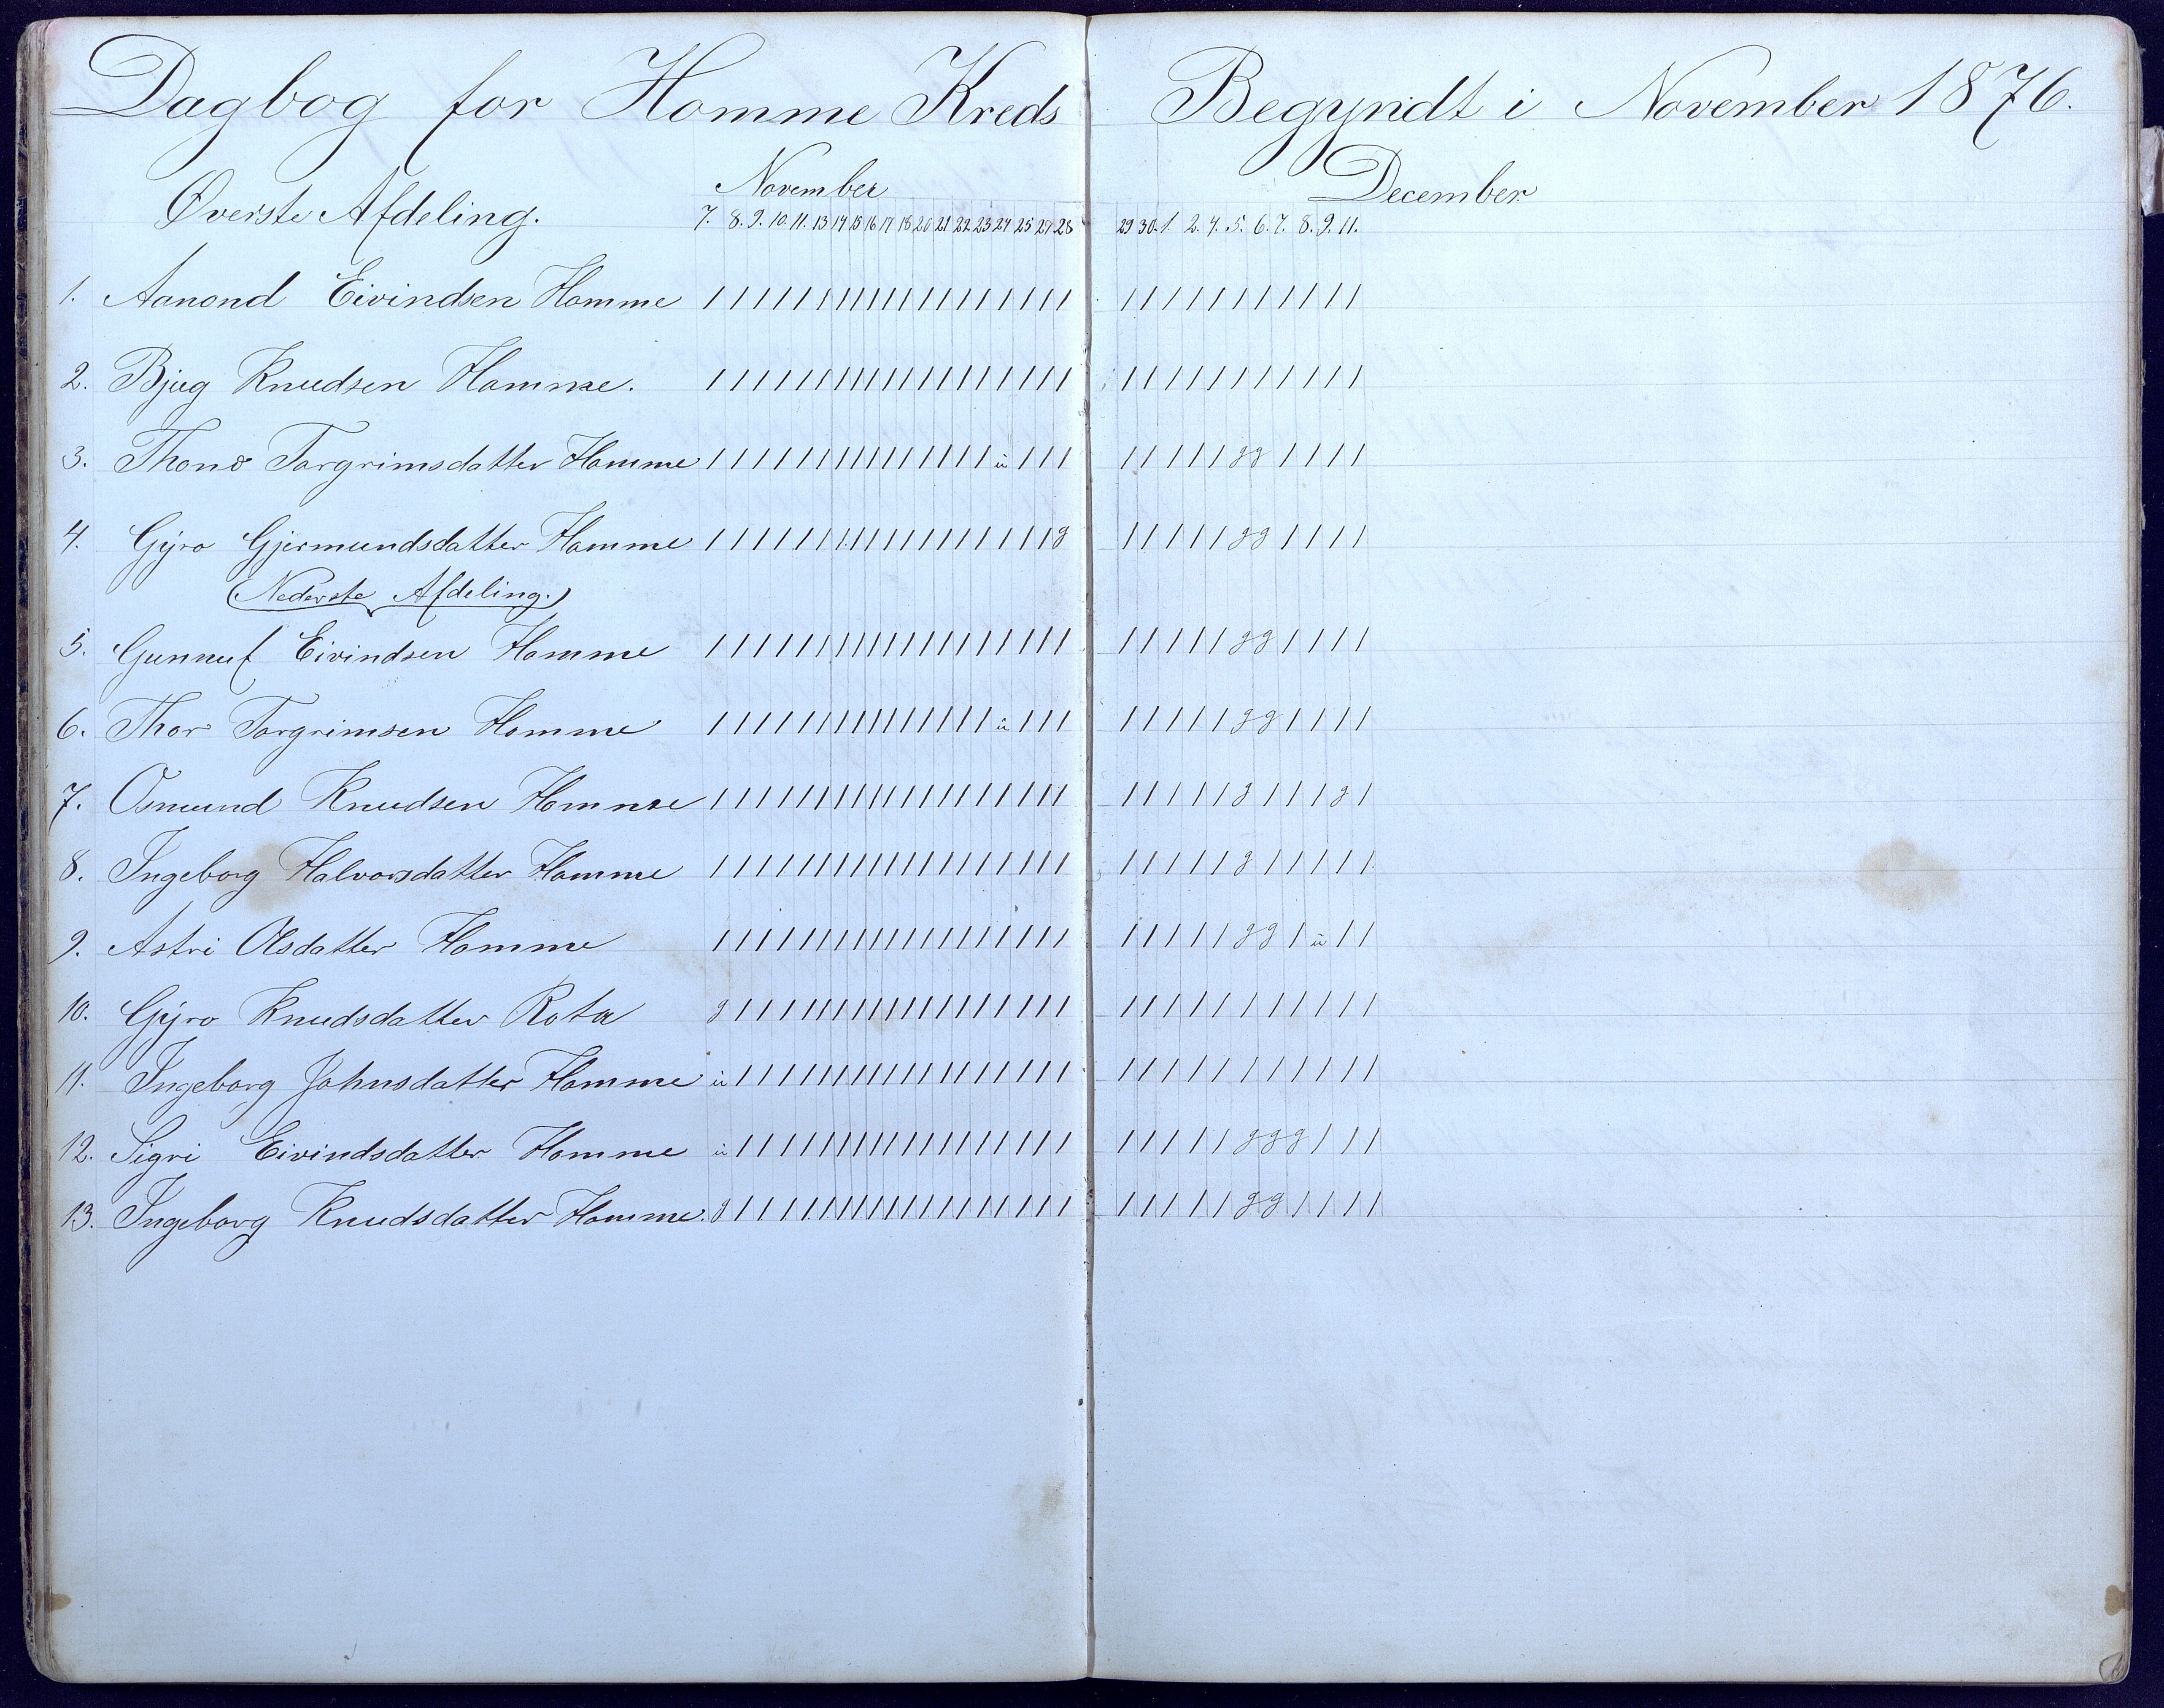 Dagbog for Homme Kreds Begyndt i November 1876.
November December
Øverste Afdeling. 7. 8. 9. 10. 11. 13 14 15 16 17 18 20 21 22 23 24 25 27 28 29 30. 1. 2. 4. 5. 6. 7. 8. 9. 11.
1. Aanond Eivindsen Homme 1 1 1 1 1 1 1 1 1 1 1 1 1 1 1 1 1 1 1 1 1 1 1 1 1 1 1 1 1 1
2. Bjug Knudsen Homme. 1 1 1 1 1 1 1 1 1 1 1 1 1 1 1 1 1 1 1 1 1 1 1 1 1 1 1 1 1 1
3. Thone Targrimsdatter Homme 1 1 1 1 1 1 1 1 1 1 1 1 1 1 1 u 1 1 1 1 1 1 1 1 g g 1 1 1 1
4. Gyro Gjermundsdatter Homme 1 1 1 1 1 1 1 1 1 1 1 1 1 1 1 1 1 1 g 1 1 1 1 1 g g 1 1 1 1
(Nederste Afdeling.)
5. Gunnuf Eivindsen Homme 1 1 1 1 1 1 1 1 1 1 1 1 1 1 1 1 1 1 1 1 1 1 1 1 g g 1 1 1 1
6. Thor Targrimsen Homme 1 1 1 1 1 1 1 1 1 1 1 1 1 1 1 u 1 1 1 1 1 1 1 1 g g 1 1 1 1
7. Osmund Knudsen Homme 1 1 1 1 1 1 1 1 1 1 1 1 1 1 1 1 1 1 1 1 1 1 1 1 g 1 1 1 g 1
8. Ingeborg Halvorsdatter Homme 1 1 1 1 1 1 1 1 1 1 1 1 1 1 1 1 1 1 1 1 1 1 1 1 g 1 1 1 1 1
9. Astri Olsdatter Homme 1 1 1 1 1 1 1 1 1 1 1 1 1 1 1 1 1 1 1 1 1 1 1 1 g g 1 u 1 1
10. Gyro Knudsdatter Rota g 1 1 1 1 1 1 1 1 1 1 1 1 1 1 1 1 1 1 1 1 1 1 1 1 1 1 1 1 1
11. Ingeborg Johnsdatter Homme u 1 1 1 1 1 1 1 1 1 1 1 1 1 1 1 1 1 1 1 1 1 1 1 1 1 1 1 1 1
12. Sigri Eivindsdatter Homme u 1 1 1 1 1 1 1 1 1 1 1 1 1 1 1 1 1 1 1 1 1 1 1 g g g 1 1 1
13. Ingeborg Knudsdatter Homme. g 1 1 1 1 1 1 1 1 1 1 1 1 1 1 1 1 1 1 1 1 1 1 1 g g 1 1 1 1